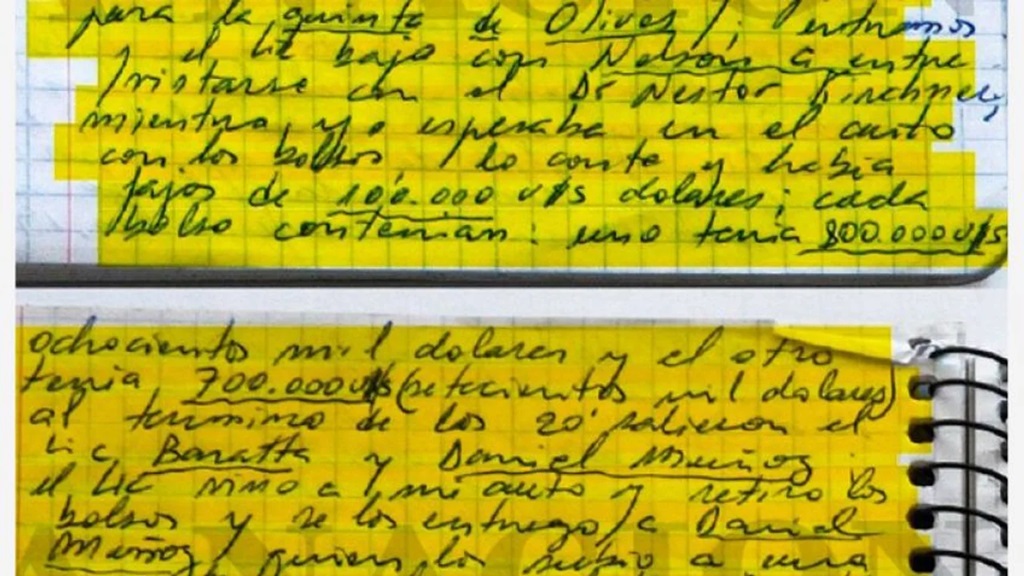 para la quinta de Olivos /; entramos
y el lic bajo con Nelson G entre
/vistarse con el Dr Nestor Kirchner,
mientras, yo esperaba en el auto
con los bolsos / lo conte y habia
fajos de 100.000 U$S dolares; cada
bolso contenian: uno tenia 800.000 U$S
ochocientos mil dolares y el otro
tenia 700.000 U$S (setecientos mil dolares)
al termino de los 20' salieron el
Lic Baratta y Daniel Muñoz.
el Lic vino a mi auto y retiro los
bolsos y se los entrego / a Daniel
Muñoz / quien los subio a una